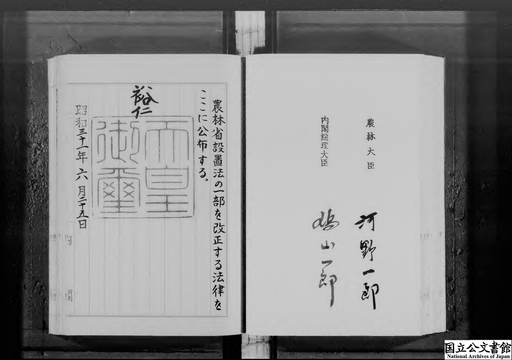 農林省設置法の一部を改正する法律を
ここに公布する。
裕仁
天皇
御璽
昭和三十一年六月二十五日
農林大臣
河野一郎
内閣総理大臣
鳩山一郎
国立公文書館
National Archives of Japan